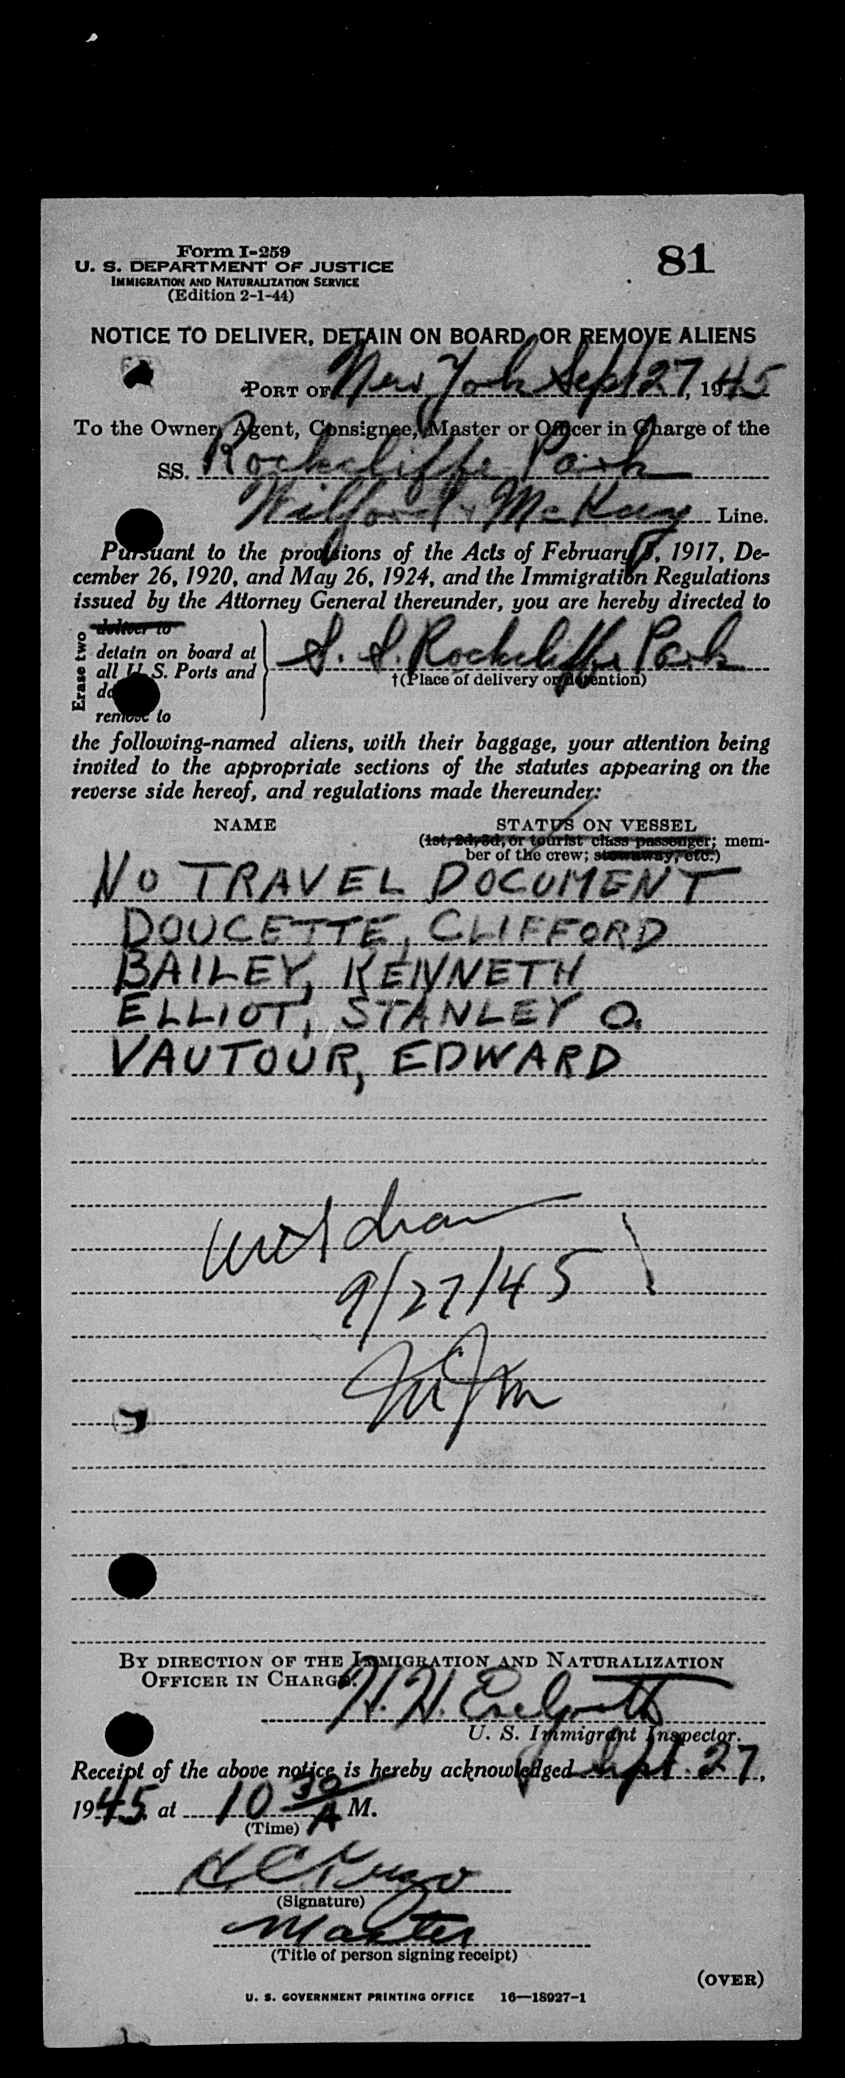 Form I-259
U. S. DEPARTMENT OF JUSTICE
IMMIGRATION AND NATURALIZATION SERVICE
(Edition 2-1-44)
81
NOTICE TO DELIVER, DETAIN ON BOARD, OR REMOVE ALIENS
PORT OF New York Sept 27, 1945
To the Owner, Agent, Consignee, Master or Officer in Charge of the
SS. Rockcliffe Park
Wilford & McKay Line.
Pursuant to the provisions of the Acts of February 5, 1917, De-
cember 26, 1920, and May 26, 1924, and the Immigration Regulations
issued by the Attorney General thereunder, you are hereby directed to
Erase two
deliver to
detain on board at
all U. S. Ports and
remove to
S. S. Rockcliffe Park
†(Place of delivery or detention)
the following-named aliens, with their baggage, your attention being
invited to the appropriate sections of the statutes appearing on the
reverse side hereof, and regulations made thereunder:
NAME STATUS ON VESSEL
(1st, 2d, 3d, or tourist class passenger; mem-
ber of the crew; stowaway, etc.)
NO TRAVEL DOCUMENT
DOUCETTE, CLIFFORD
BAILEY, KENNETH
ELLIOT, STANLEY O.
VAUTOUR, EDWARD
9/27/45
BY DIRECTION OF THE IMMIGRATION AND NATURALIZATION
OFFICER IN CHARGE.
H. H.
U. S. Immigrant Inspector.
Receipt of the above notice is hereby acknowledged Sept. 27,
1945 at 10 30 A M.
(Time)
(Signature)
Master
(Title of person signing receipt)
(OVER)
U. S. GOVERNMENT PRINTING OFFICE 16—18927-1